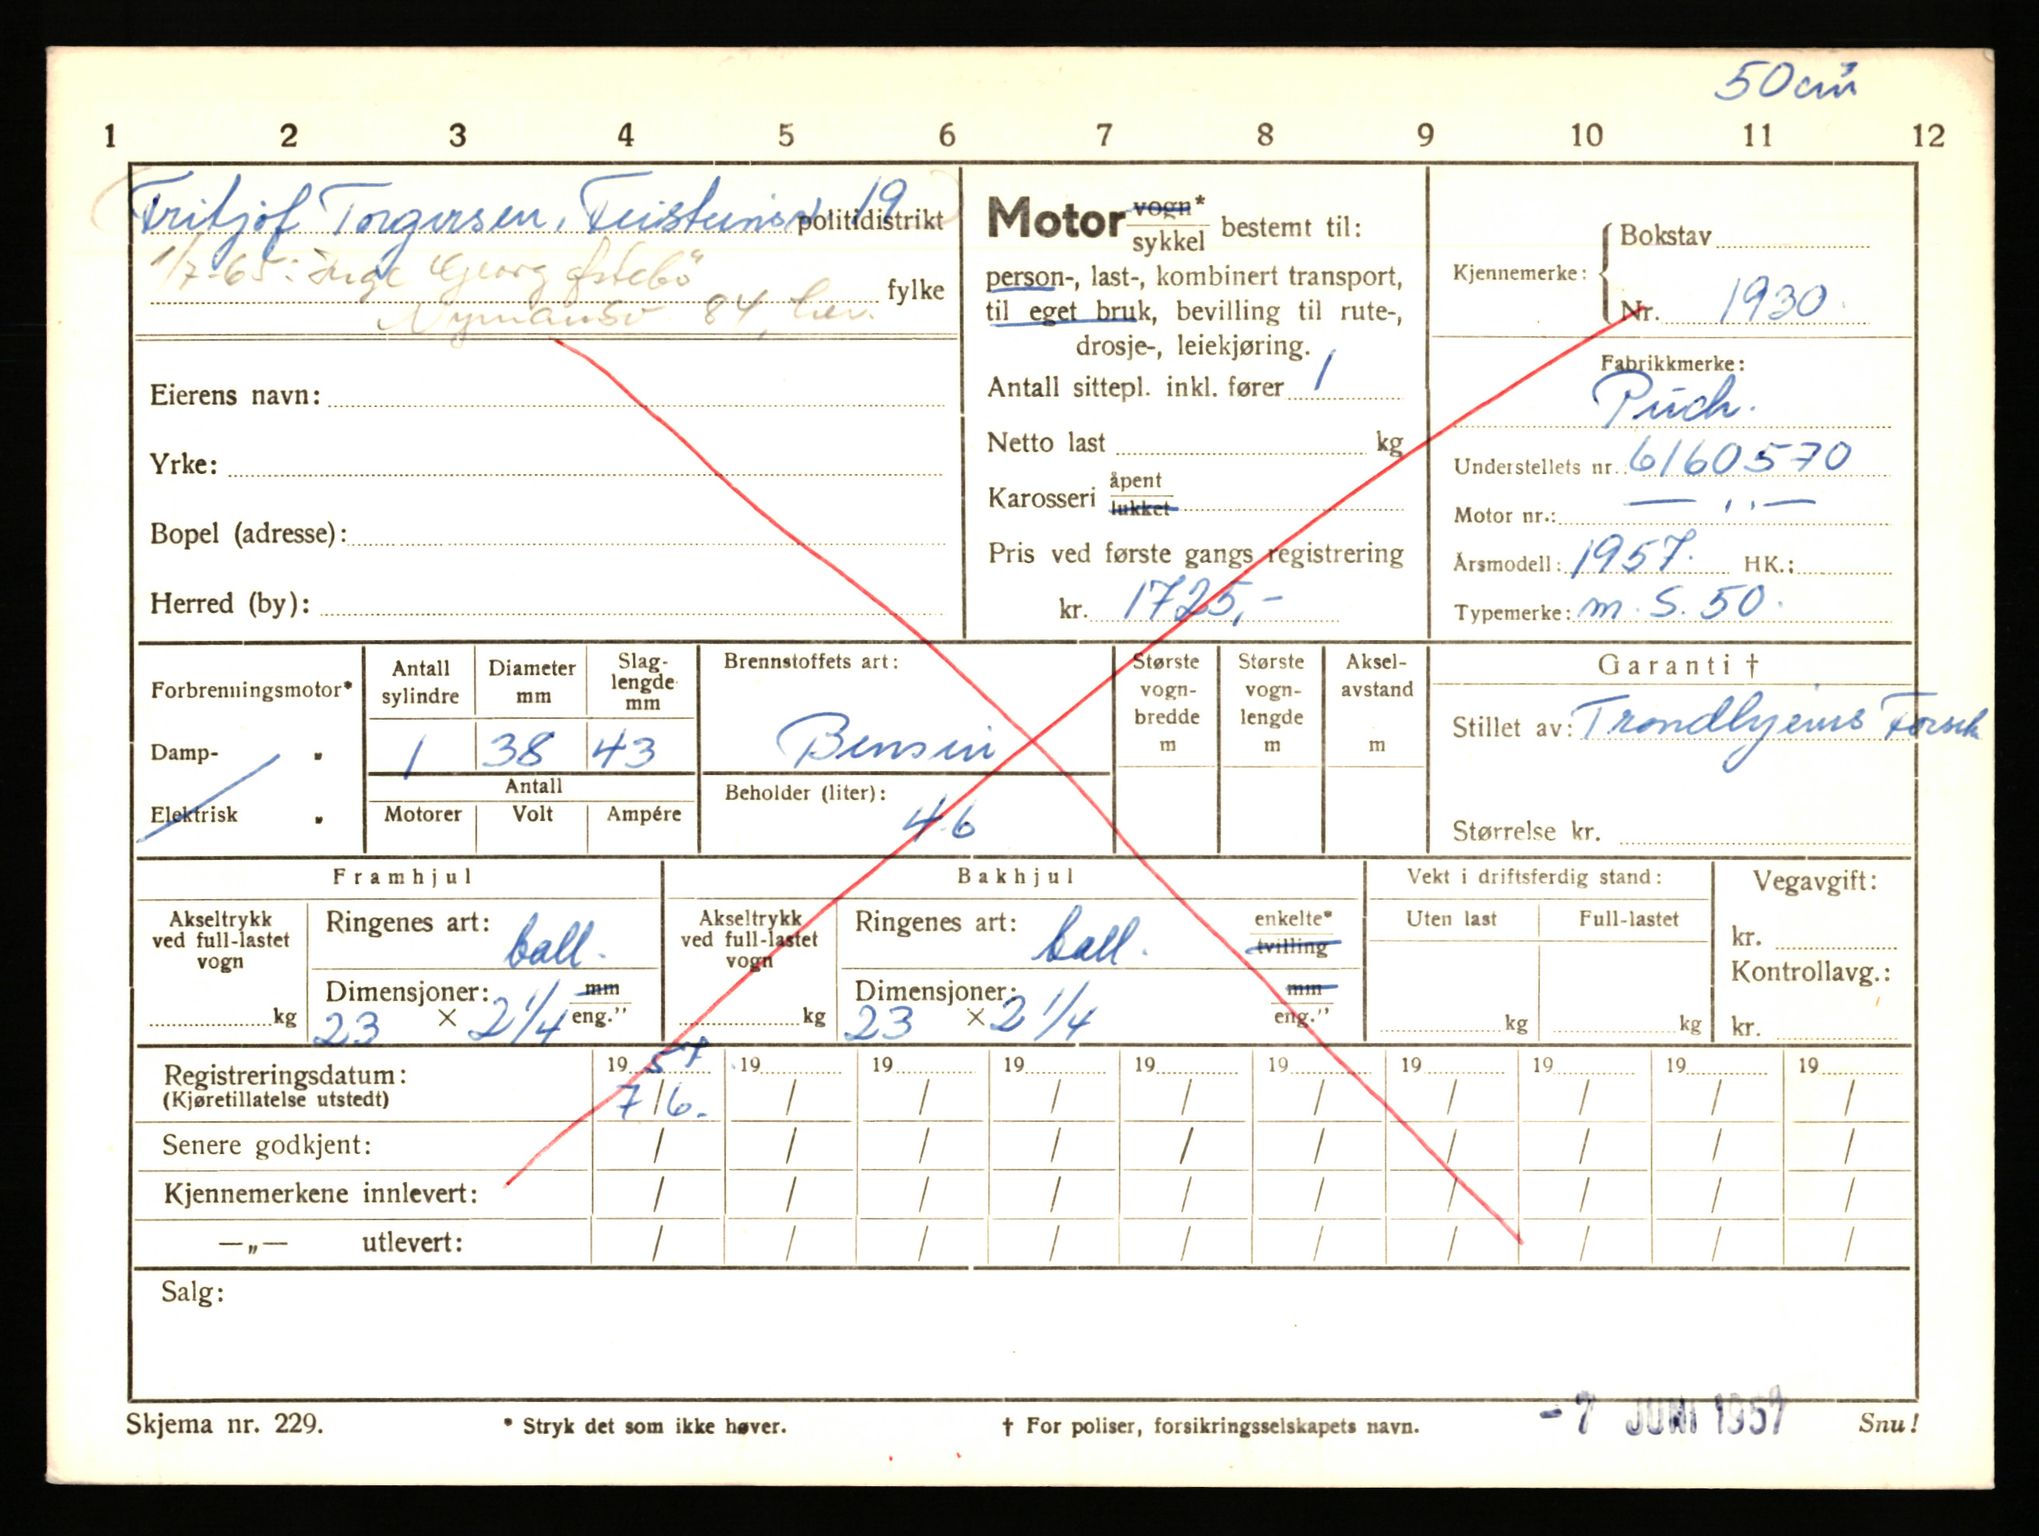 50 cm³
1 2 3 4 5 6 7 8 9 10 11 12
Fritjof Torgersen, Feisteinsv 19
politidistrikt
1/7-65: Inge Georg Østebö
fylke
Nymansv 84, her.
Eierens navn:
Yrke:
Bopel (adresse):
Herred (by):
Motor vogn* sykkel bestemt til:
person-, last-, kombinert transport,
til eget bruk, bevilling til rute-,
drosje-, leiekjøring.
Antall sittepl. inkl. fører 1
Netto last kg
Karosseri åpent lukket
Pris ved første gangs registrering
kr. 1725,-
Kjennemerke: Bokstav
Nr. 1930
Fabrikkmerke:
Puch.
Understellets nr. 6160570
Motor nr.: — ,, —
Årsmodell: 1957. HK.:
Typemerke: m. S. 50.
Forbrenningsmotor*
Damp- „
Elektrisk „
Antall sylindre
Diameter mm
Slag-lengde mm
1 38 43
Antall
Motorer Volt Ampére
Brennstoffets art:
Bensin
Beholder (liter):
4.6
Største vogn-bredde m
Største vogn-lengde m
Aksel-avstand m
Garanti †
Stillet av: Trondhjems Forsik
Størrelse kr.
Framhjul
Akseltrykk ved full-lastet vogn
kg
Ringenes art: ball.
Dimensjoner: mm
23 × 2 1/4 eng."
Bakhjul
Akseltrykk ved full-lastet vogn
kg
Ringenes art: ball. enkelte* tvilling
Dimensjoner: mm
23 × 2 1/4 eng."
Vekt i driftsferdig stand:
Uten last Full-lastet
kg kg
Vegavgift:
kr.
Kontrollavg.:
kr.
Registreringsdatum: 19 57 19 19 19 19 19 19 19 19 19
(Kjøretillatelse utstedt) 7/6. / / / / / / / / /
Senere godkjent: / / / / / / / / / /
Kjennemerkene innlevert: / / / / / / / / / /
—„— utlevert: / / / / / / / / / /
Salg:
Skjema nr. 229. * Stryk det som ikke høver. † For poliser, forsikringsselskapets navn. -7 JUNI 1957 Snu!